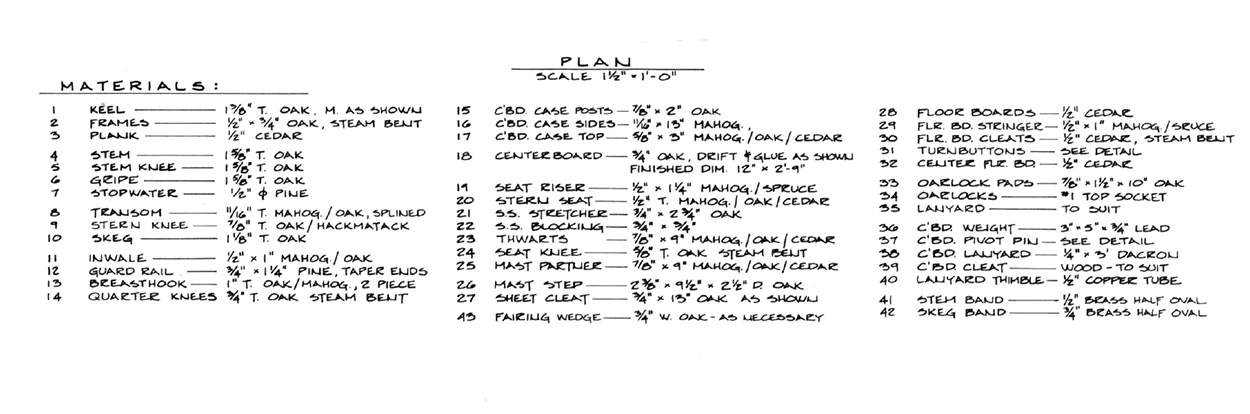 PLAN
SCALE 1½" = 1'-0"
MATERIALS:
1 KEEL — 1⅜" T. OAK, M. AS SHOWN
2 FRAMES — ½" × ¾" OAK, STEAM BENT
3 PLANK — ½" CEDAR
4 STEM — 1⅝" T. OAK
5 STEM KNEE — 1⅝" T. OAK
6 GRIPE — 1⅝" T. OAK
7 STOPWATER — ½" φ PINE
8 TRANSOM — 11/16" T. MAHOG./OAK, SPLINED
9 STERN KNEE — ⅞" T. OAK/HACKMATACK
10 SKEG — 1⅛" T. OAK
11 INWALE — ½" × 1" MAHOG./OAK
12 GUARD RAIL — ¾" × 1¼" PINE, TAPER ENDS
13 BREASTHOOK — 1" T. OAK/MAHOG., 2 PIECE
14 QUARTER KNEES ¾" T. OAK STEAM BENT
15 C'BD. CASE POSTS — ⅞" × 2" OAK
16 C'BD. CASE SIDES — 11/16" × 13" MAHOG.
17 C'BD. CASE TOP — ⅝" × 3" MAHOG./OAK/CEDAR
18 CENTERBOARD — ¾" OAK, DRIFT & GLUE AS SHOWN
FINISHED DIM. 12" × 2'-9"
19 SEAT RISER — ½" × 1¼" MAHOG./SPRUCE
20 STERN SEAT — ½" T. MAHOG./OAK/CEDAR
21 S.S. STRETCHER — ¾" × 2¾" OAK
22 S.S. BLOCKING — ¾" × ¾"
23 THWARTS — ⅞" × 9" MAHOG./OAK/CEDAR
24 SEAT KNEE — ⅝" T. OAK STEAM BENT
25 MAST PARTNER — ⅞" × 9" MAHOG./OAK/CEDAR
26 MAST STEP — 2⅜" × 9½" × 2½" D. OAK
27 SHEET CLEAT — ¾" × 13" OAK AS SHOWN
43 FAIRING WEDGE — ¾" W. OAK - AS NECESSARY
28 FLOOR BOARDS — ½" CEDAR
29 FLR. BD. STRINGER — ½" × 1" MAHOG./SRUCE
30 FLR. BD. CLEATS — ½" CEDAR, STEAM BENT
31 TURNBUTTONS — SEE DETAIL
32 CENTER FLR. BD. — ½" CEDAR
33 OARLOCK PADS — ⅞" × 1½" × 10" OAK
34 OARLOCKS — #1 TOP SOCKET
35 LANYARD — TO SUIT
36 C'BD. WEIGHT — 3" × 5" × ¾" LEAD
37 C'BD. PIVOT PIN — SEE DETAIL
38 C'BD. LANYARD — ¼" × 3' DACRON
39 C'BD. CLEAT — WOOD - TO SUIT
40 LANYARD THIMBLE — ½" COPPER TUBE
41 STEM BAND — ½" BRASS HALF OVAL
42 SKEG BAND — ¾" BRASS HALF OVAL